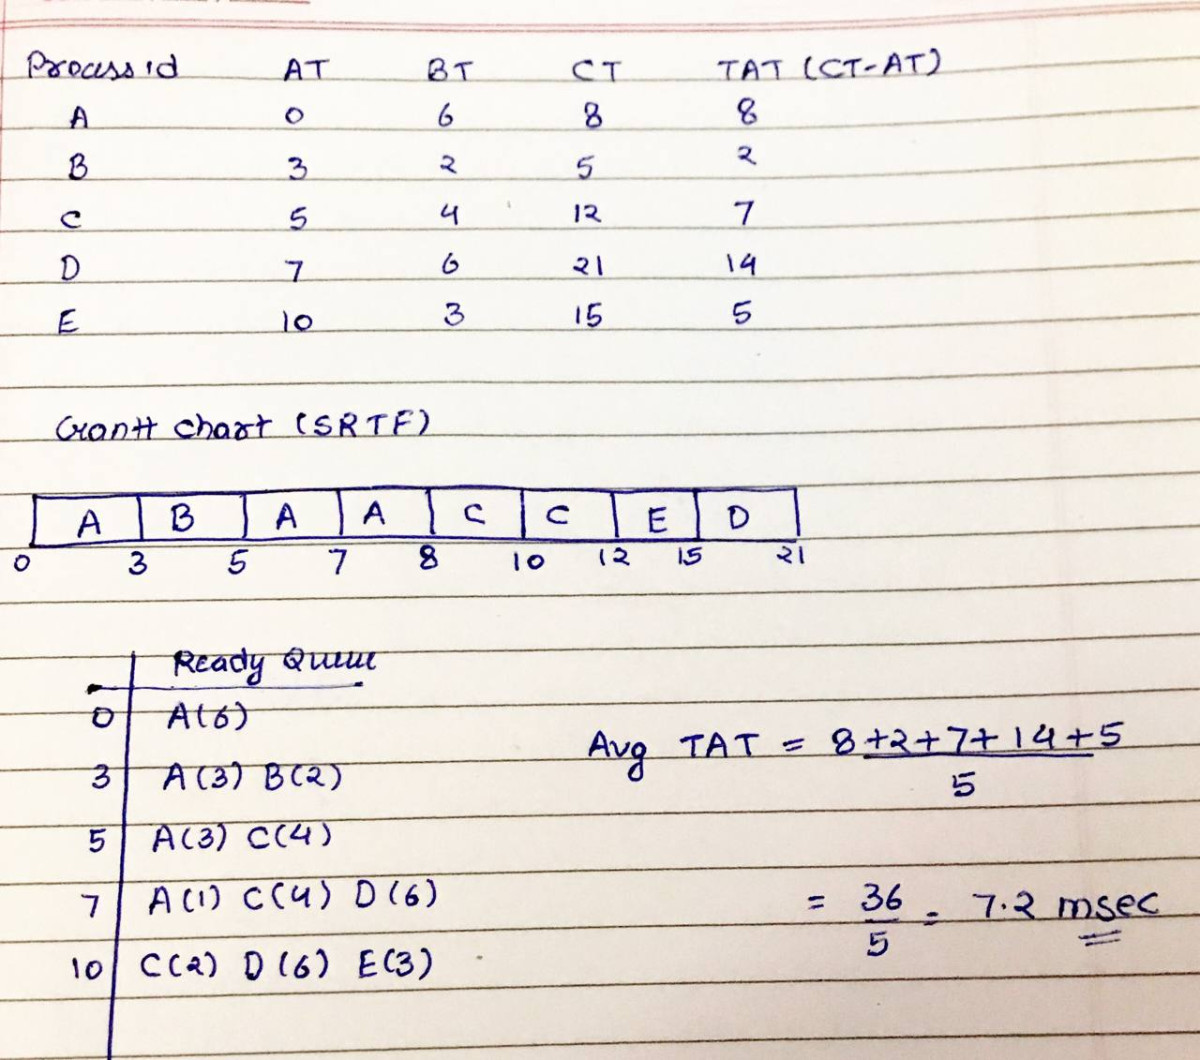 Process id AT BT CT TAT (CT-AT)
A 0 6 8 8
B 3 2 5 2
C 5 4 12 7
D 7 6 21 14
E 10 3 15 5
Grantt chart (SRTF)
A B A A C C E D
0 3 5 7 8 10 12 15 21
Ready Queue
0 A(6)
3 A(3) B(2)
5 A(3) C(4)
7 A(1) C(4) D(6)
10 C(2) D(6) E(3)
Avg TAT = 8+2+7+14+5
5
= 36 = 7.2 msec
5